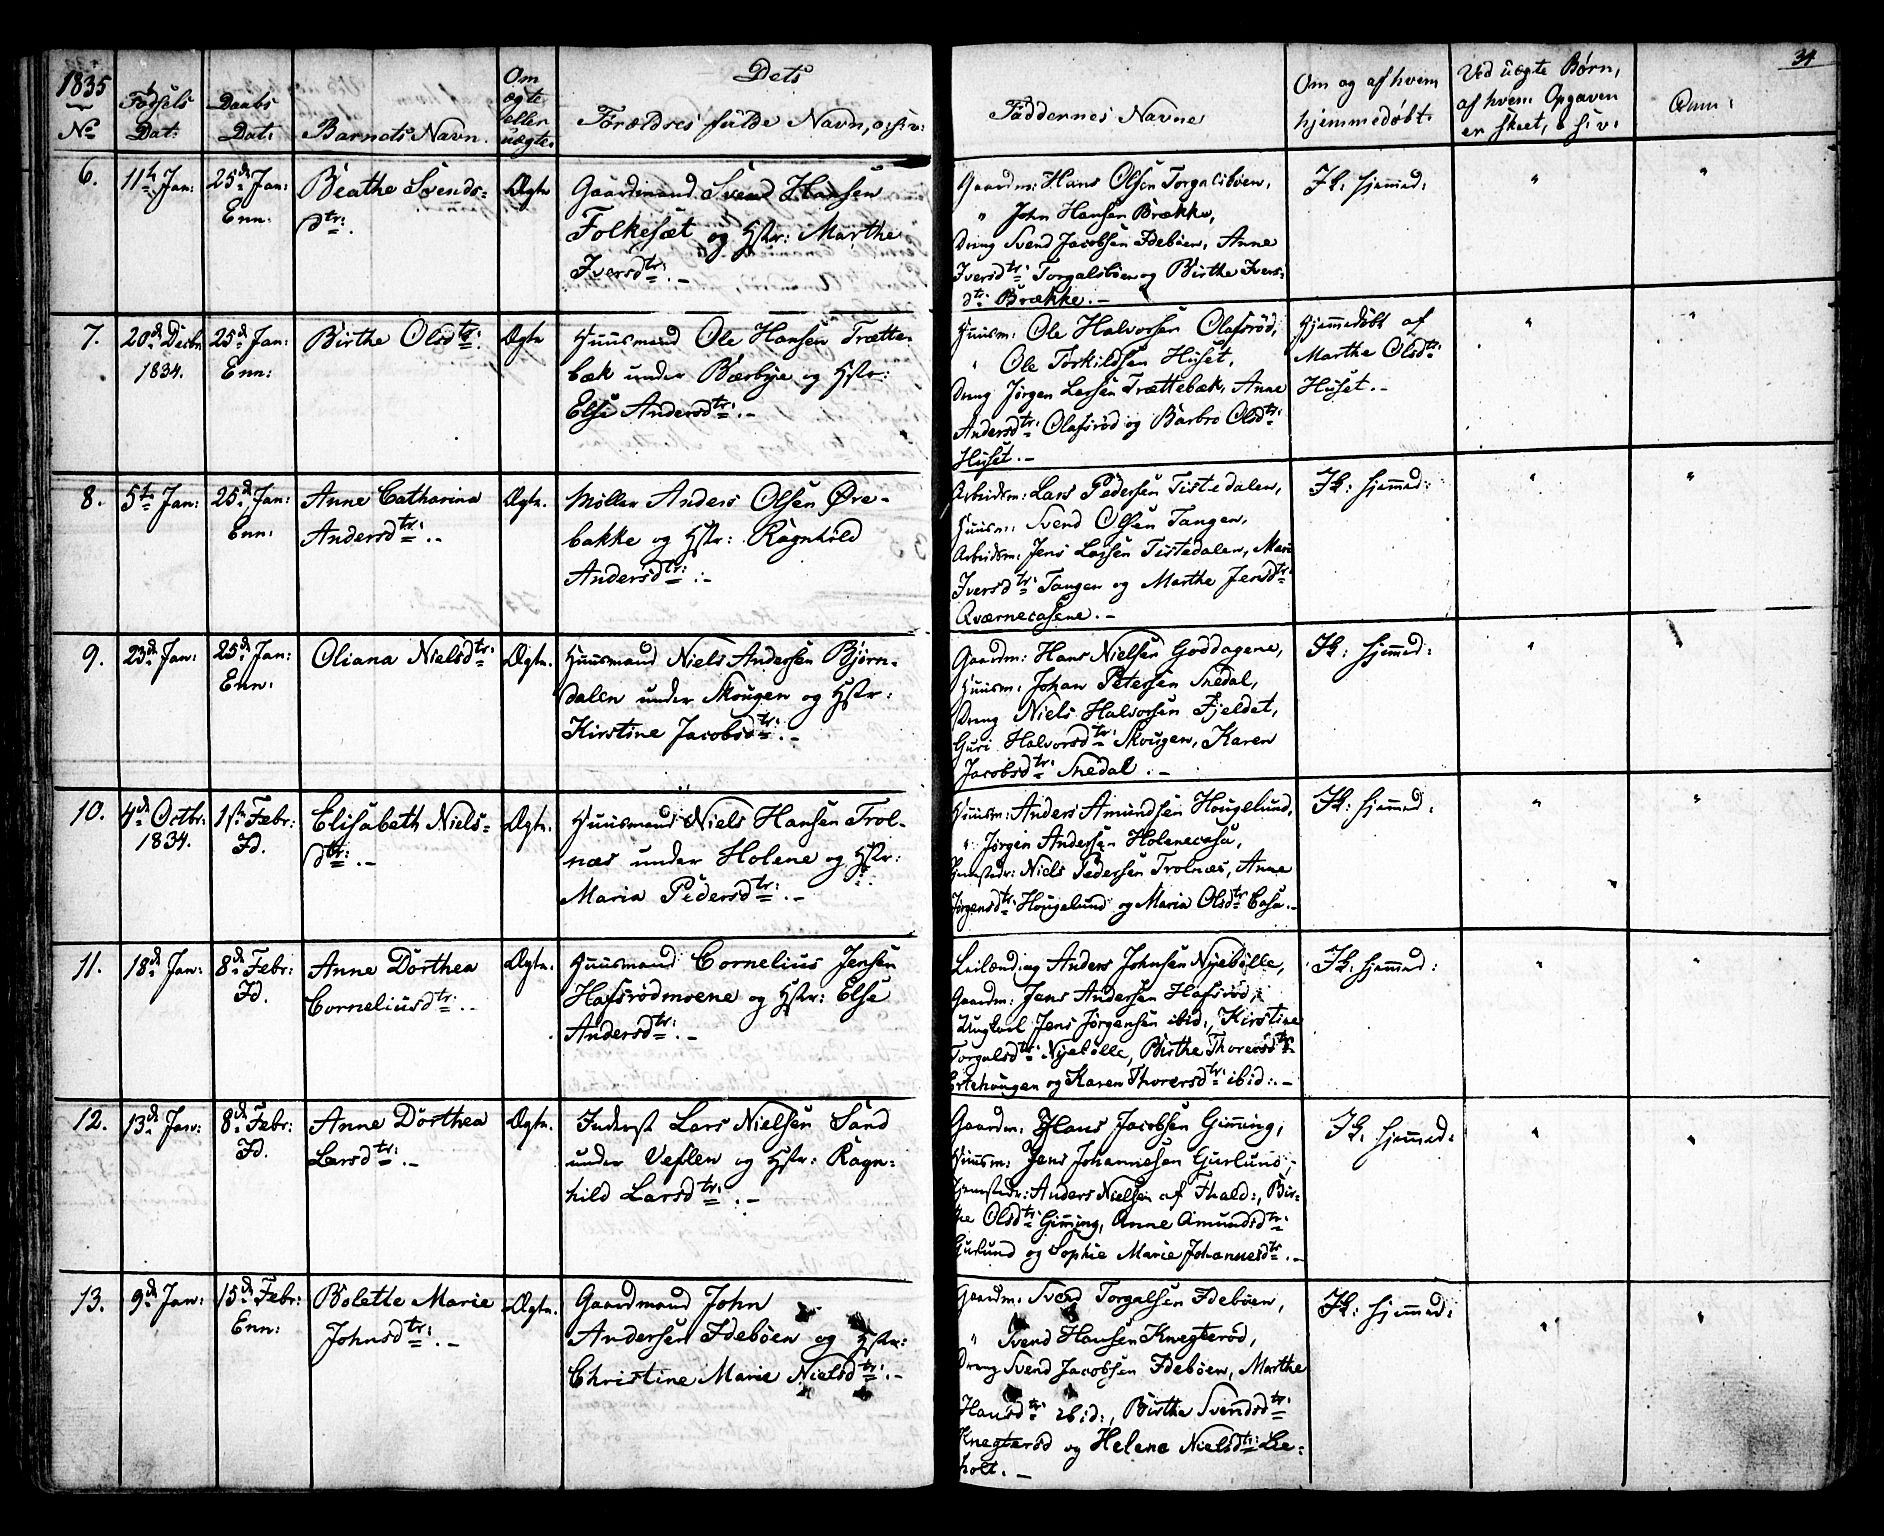 34
1835
No
Fødsels Dat:
Daabs Dat:
Barnets Navn.
Om ægte eller uægte.
Dets Forældres fulde Navn, o: s: v:
Faddernes Navne
Om og af hvem hjemmedøbt.
Ved uægte Børn, af hvem Opgaven er skeet, o s: v:
Anm:
6.
11te Jan:
25de Jan:
Enn:
Beathe Svends-
dtr:.
Ægte
Gaardmand Svend Hansen
Folkesæt og Hstr: Marthe
Iversdtr:.-
Gaardm: Hans Olsen Torgalsbøen,
" John Hansen Brække,
Dreng Svend Jacobsen Idebøen, Anne
Iversdtr: Torgalsbøen og Birthe Ivers-
dtr: Brække.-
Ik: hjemmed:
"
"
7.
20de Decbr
1834.
25de Jan:
Enn:
Birthe Olsdtr:
Ægte
Huusmand Ole Hansen Trætte-
bæk under Bærbye og Hstr:
Else Andersdtr:.-
Huusm: Ole Halvorsen Olafsrød,
" Ole Torkildsen Huset,
Dreng Jørgen Larsen Trættebæk, Anne
Andersdtr: Olafsrød og Barbro Olsdtr:
Huset.-
Hjemmedøbt af
Marthe Olsdtr:
Huset.-
"
"
8.
5te Jan:
25de Jan:
Enn:
Anne Catharina
Andersdtr:.-
Ægte.
Møller Anders Olsen Øre-
bakke og Hstr: Ragnhild
Andersdtr:.-
Arbeidsm: Lars Pedersen Tistedalen,
Huusm: Svend Olsen Tangen,
Arbeidsm: Jens Larsen Tistedalen, Mari
Iversdtr: Tangen og Marthe Jensdtr:
Qværnecasene.-
Ik: hjemmed:
"
"
9.
23de Jan:
25de Jan:
Enn:
Oliana Nielsdtr:
Ægte.
Huusmand Niels Andersen Bjørn-
dalen under Skougen og Hstr:
Kirstine Jacobsdtr:.-
Gaardm: Hans Nielsen Goddagene,
Huusm: Johan Petersen Snedal,
Dreng Niels Halvorsen Fjeldet,
Guri Halvorsdtr: Skougen, Karen
Jacobsdtr: Snedal.-
Ik: hjemmed:
"
10.
4de Octbr:
1834.
1ste Febr:
Fd.
Elisabeth Niels-
dtr:.-
Ægte.
Huusmand Niels Hansen Trol-
næs under Holene og Hstr:
Maria Pedersdtr:.-
Huusm: Anders Amundsen Hougelund,
" Jørgen Andersen Holenecasa,
Niels Pedersen Trolnæs, Anne
Jørgensdtr: Hougelund og Maria Olsdtr: Casa.-
Ik: hjemmed:
"
"
11.
18de Jan:
8de Febr:
Fd.
Anne Dorthea
Corneliusdtr:.-
Ægte.
Huusmand Cornelius Jensen
Hafsrødmoene og Hstr: Else
Andersdtr:.-
Leilænding Anders Johnsen Nyebølle,
Gaardm: Jens Andersen Hafsrød,
Ungkarl Jens Jørgensen ibid:, Kirstine
Torgalsdtr: Nyebølle, Birthe Thorersdtr:
Ertehougen og Karen Thorersdtr: ibid:.-
Ik: hjemmed:
"
"
12.
13de Jan:
8de Febr:
Fd.
Anne Dorthea
Larsdtr:.-
Ægte.
Inderst Lars Nielsen Sand
under Veflen og Hstr: Ragn-
hild Larsdtr:.-
Gaardm: Hans Jacobsen Gimming,
Huusm: Jens Johannesen Gurlund,
Anders Nielsen af Fhald:, Bir-
the Olsdtr: Gimming, Anne Amundsdtr:
Gurlund og Sophie Marie Johannesdtr:.-
Ik: hjemmed:
"
"
13.
9de Jan:
15de Febr:
Enn:
Bolette Marie
Johnsdtr:.-
Ægte.
Gaardmand John
Andersen Idebøen og Hstr:
Christine Marie Nielsdtr:.-
Gaardm: Svend Torgalsen Idebøen,
" Svend Hansen Knegterød,
Dreng Svend Jacobsen Idebøen, Marthe
Hansdtr: ibid:, Birthe Svendsdtr:
Knegterød og Helene Nielsdtr: Le-
holt.-
Ik: hjemmed:
"
"